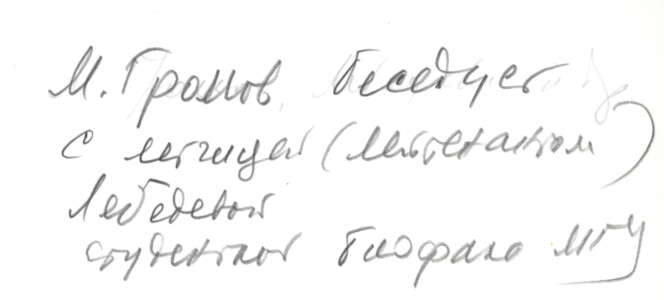 М. Громов беседует
с летчицей (лейтенантом)
Лебедевой
студенткой биофака МГУ